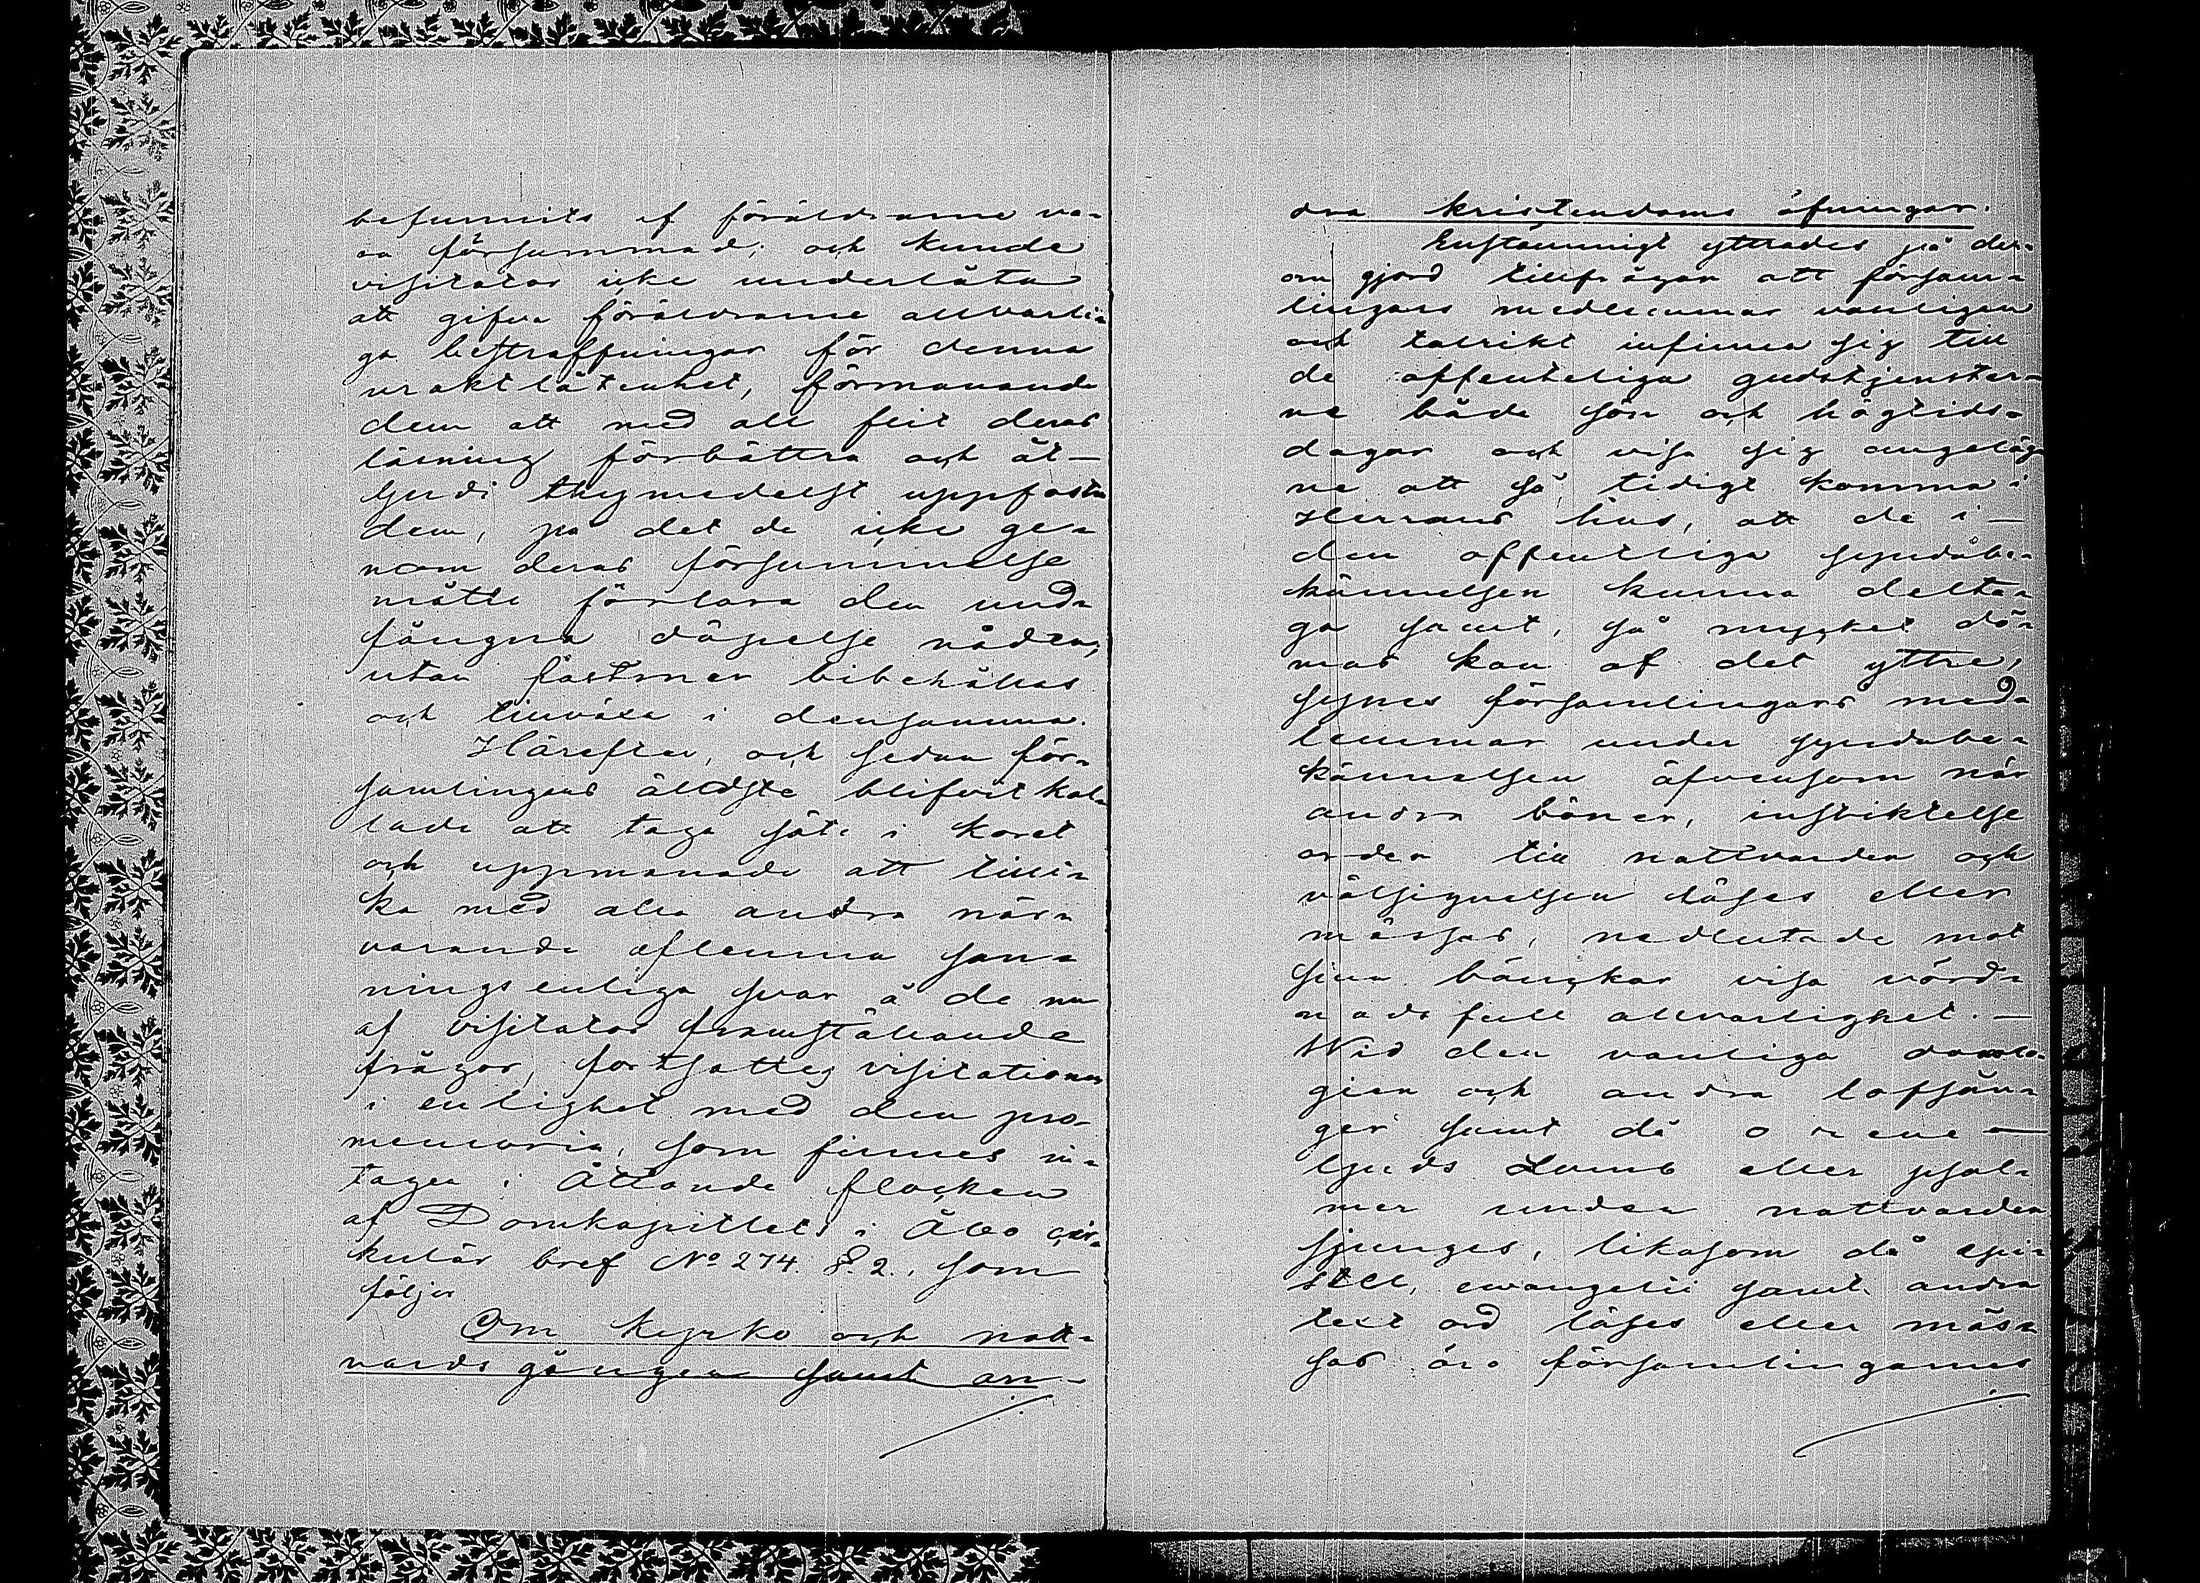 befunnits af föräldrarne va-
ra försummad; och kunde
visitator icke underlåta
att gifva föräldrarne allvarli-
ga bestraffningar för denna
vraktlåtenhet, förmanande
dem att med all flit deras
läsning förbättra och åt-
ljudi thymedelst uppfostra
dem, på det de icke ge-
nom deras försummelse
måtte förlora den und-
fångna döpelse nåden,
utan fastmer bibehållas
och tillväxa i densamma.
Härefter, och sedan för-
samlingens äldste blifvit kal-
lade att taga säte i koret
och uppmanade att tilli-
ka med alla andra när-
varande aflemna san-
ningsenliga svar å de nu
af visitator framställande
frågor, fortsattes visitationen
i enlighet med den pro-
memoria, som finnes in-
tagen i Åttonde flocken
af Domkapitlets i Åbo cir-
kulär bref No 274 §. 2., som
följer
Om kyrko och natt-
vards gången samt an-
dra kristendoms öfningar.
Enstämmigt yttrades på der-
om gjord tillfrågan att försam-
lingens medlemmar vanligen
och talrikt infinna sig till
de offenteliga gudstjenster-
ne både sön och högtids-
dagar och visa sig angeläg-
ne att så tidigt komma i
Herrans hus, att de i
den offentliga syndabe-
kännelsen kunna delta-
ga samt, så mycket dö-
mas kan af det yttre,
synes församlingens med-
lemmar under syndabe-
kännelsen äfvensom när
andra böner, instiktelse
orden till nattvarden och
välsignelsen läses eller
mässas, nedlutade mot
sina bänckar visa vörd-
nads full allvarlighet. —
Wid den vanliga doxolo-
gien och andra lofsån-
ger samt då o rene
ljuds Lamb eller psal-
mer under nattvarden
sjunges, likasom då epi-
stel, evangelii samt andra
text ord läses eller mäs-
sas äro församlingarnes